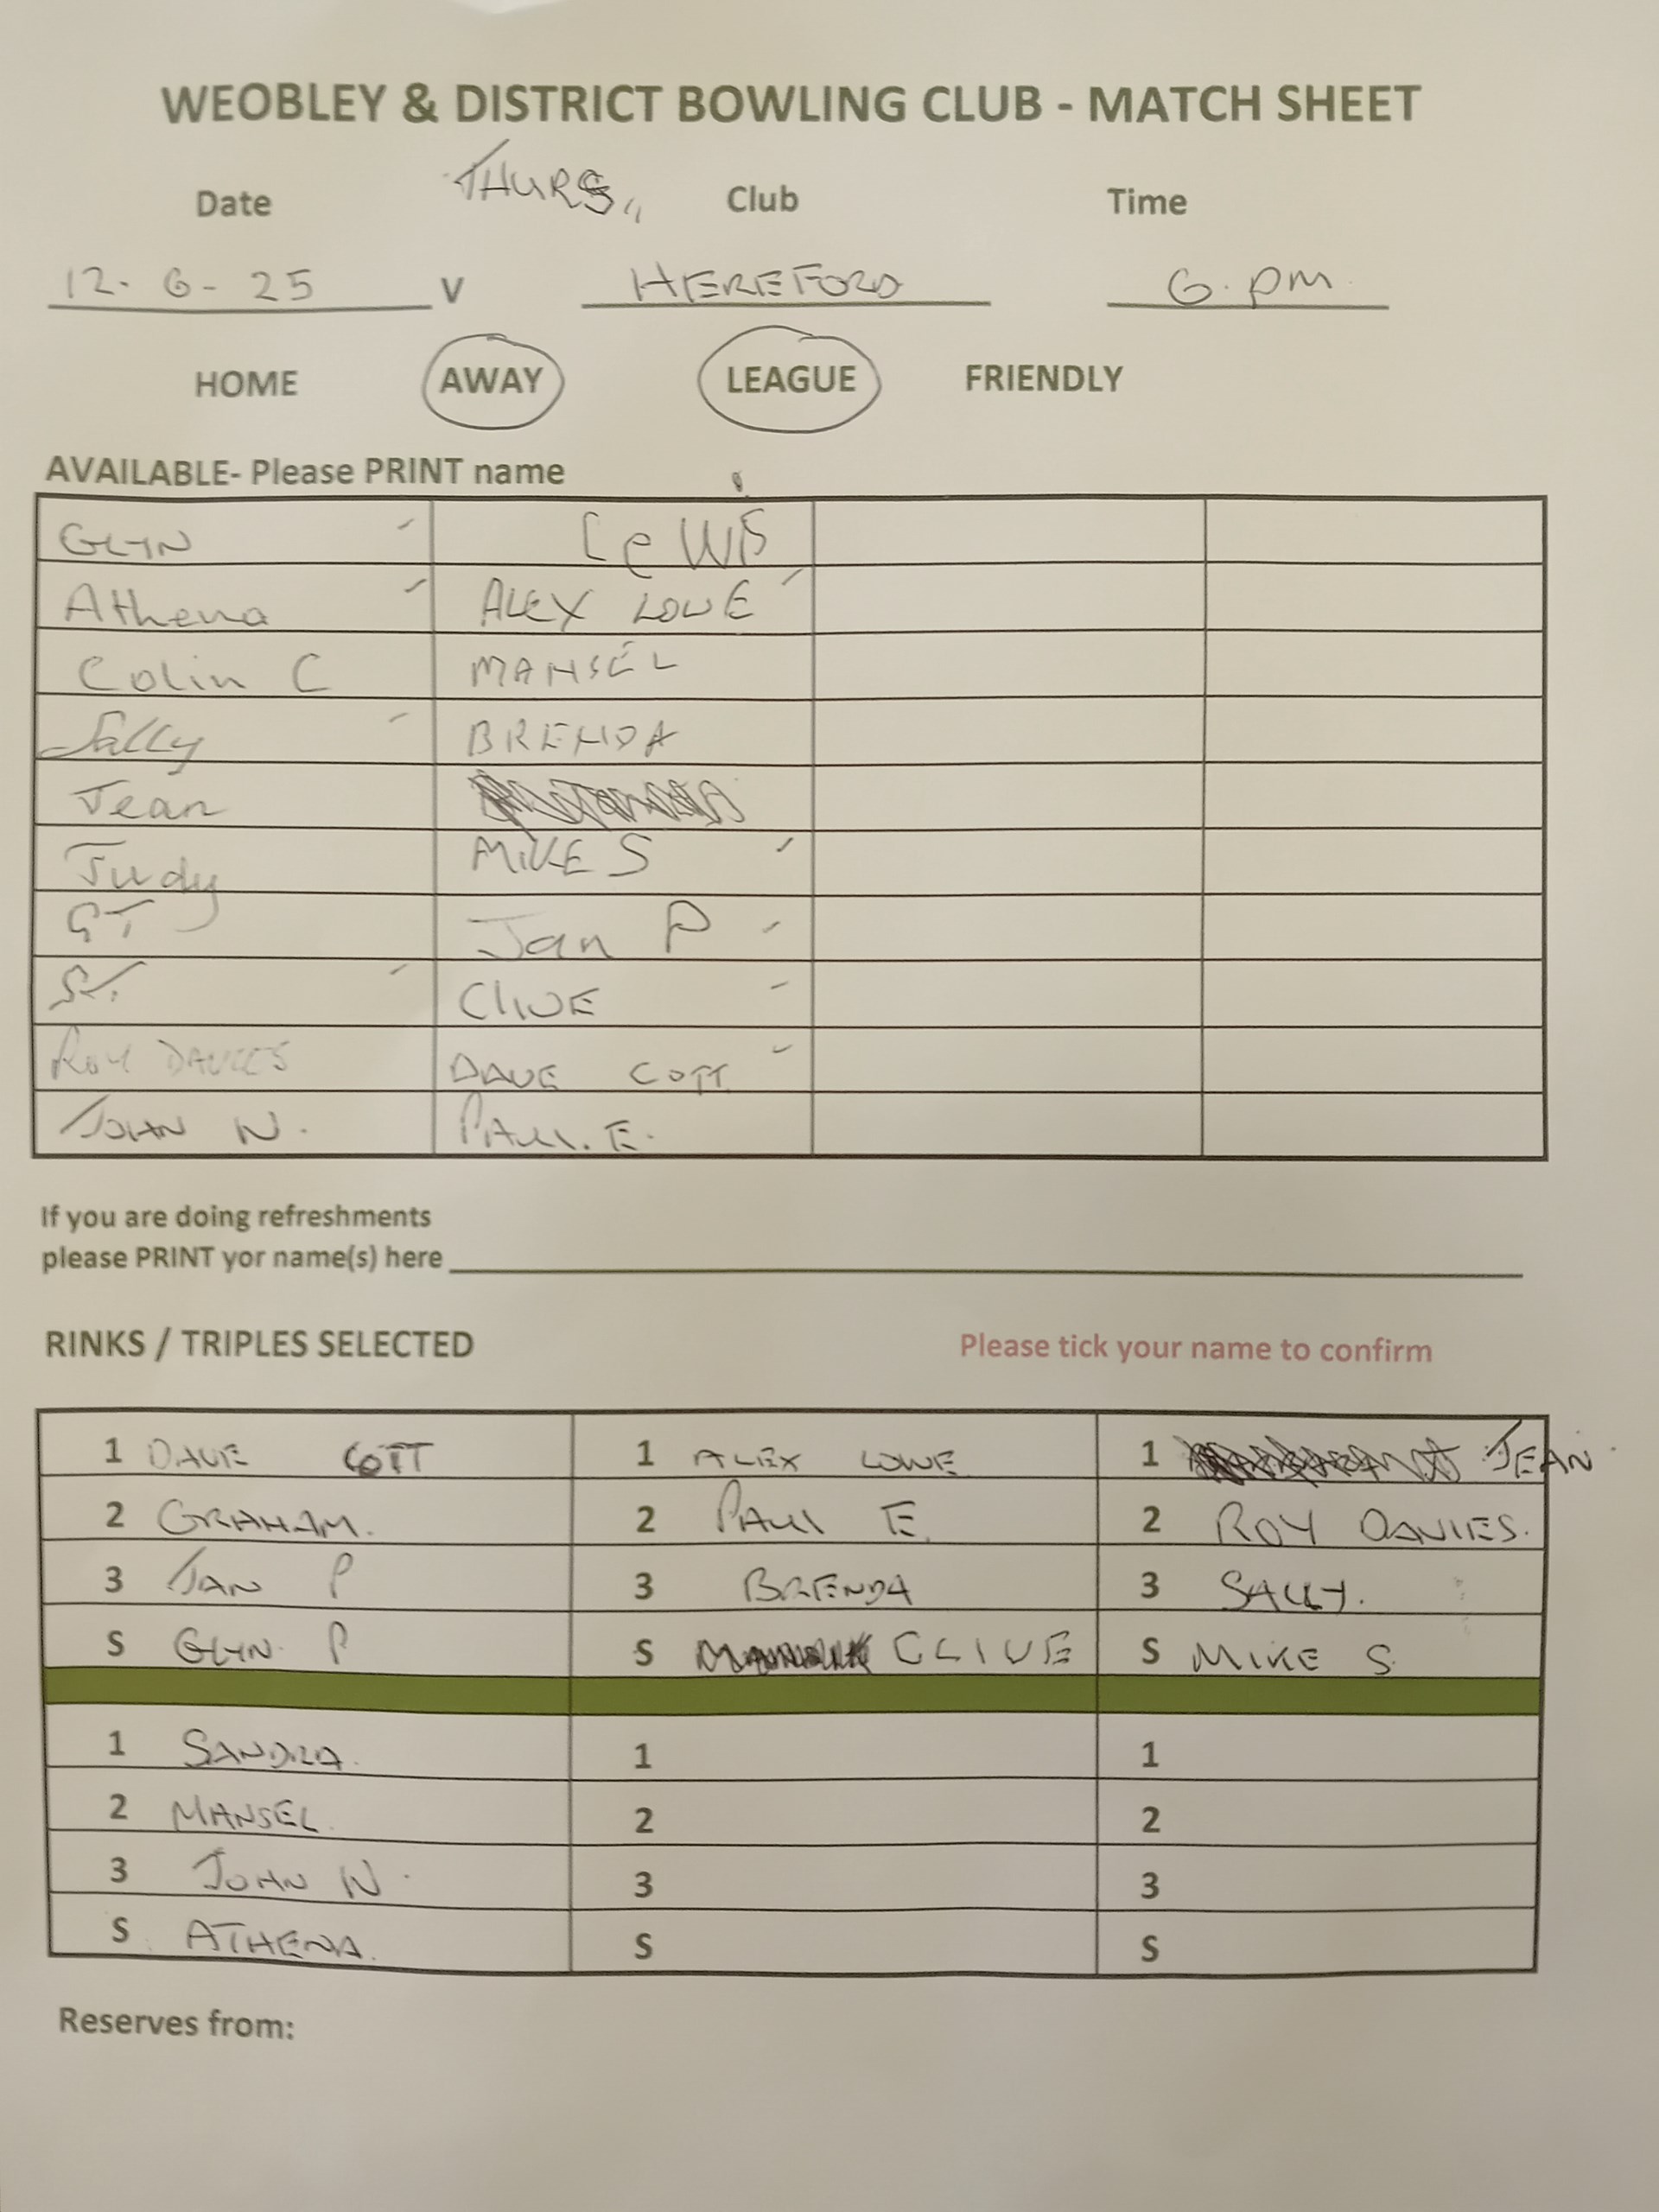 WEOBLEY & DISTRICT BOWLING CLUB - MATCH SHEET
Date THURS,, Club Time
12-6-25 V HEREFORD 6.pm.
HOME AWAY LEAGUE FRIENDLY
AVAILABLE- Please PRINT name
GLYN LeWiS
Athena ALEX LOWE
Colin C MANSEL
Sally BRENDA
Jean
Judy MIKE S
GT Jan P
ST. CLIVE
ROY DAVIES DAVE COTT
JOHN N. PAUL.E.
If you are doing refreshments
please PRINT yor name(s) here
RINKS / TRIPLES SELECTED Please tick your name to confirm
1 DAVE COTT 1 ALEX LOWE 1 JEAN
2 GRAHAM. 2 PAUL E. 2 ROY DAVIES.
3 JAN P 3 BRENDA 3 SALLY.
S GLYN P S CLIVE S MIKE S
1 SANDRA. 1 1
2 MANSEL. 2 2
3 JOHN N. 3 3
S ATHENA. S S
Reserves from: